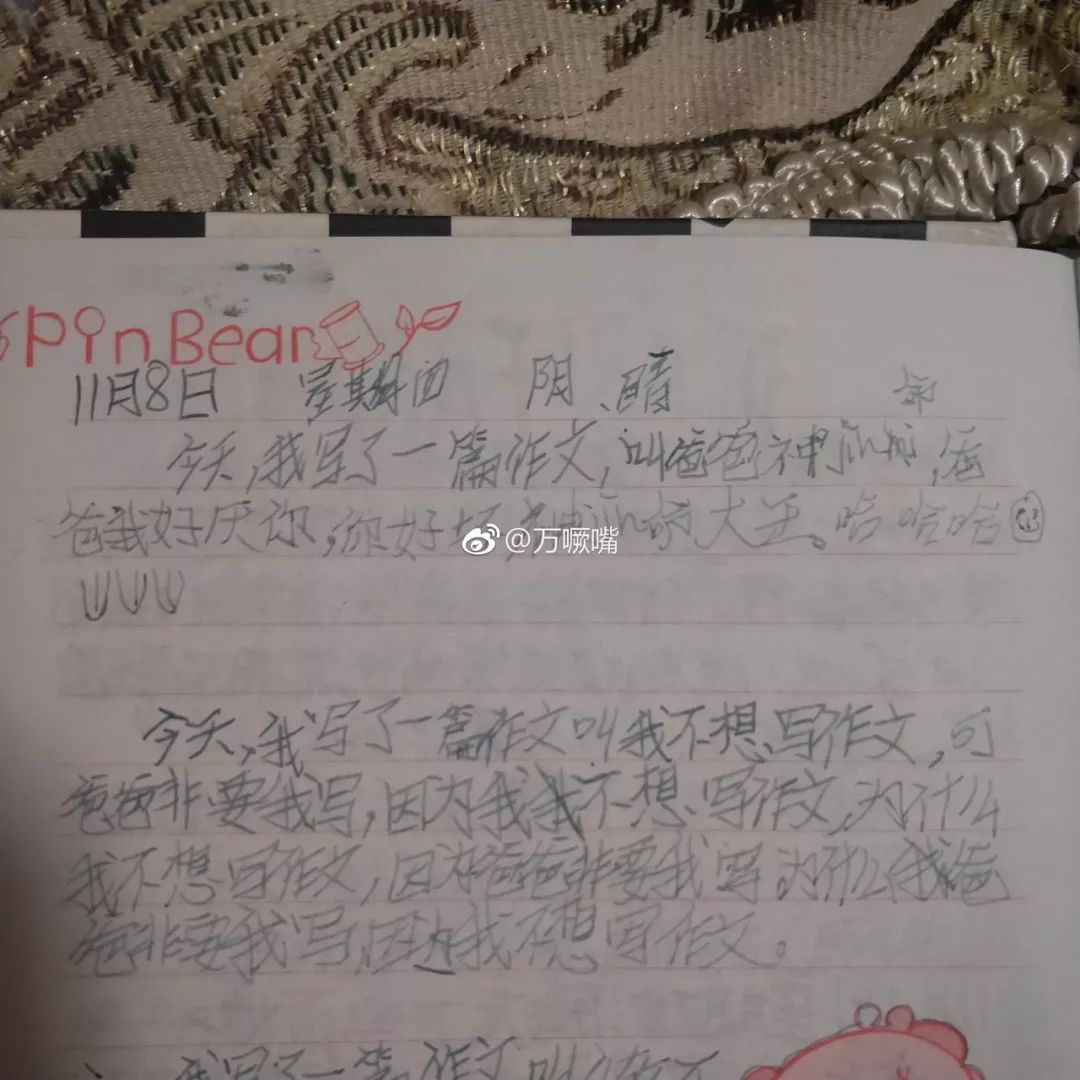 pin Bear
11月8日 星期四 阴、晴
今天,我写了一篇作文,叫爸爸神爪病,爸
爸我好厌你,你好坏,大王。哈哈哈
@万噘嘴
今天,我写了一篇作文叫我不想写作文,可
爸爸非要我写,因为我我不想写作文,为什么
我不想写作文,因为爸爸非要我写为什么我爸
爸非要我写,因为我不想写作文。
我写了一篇作文叫